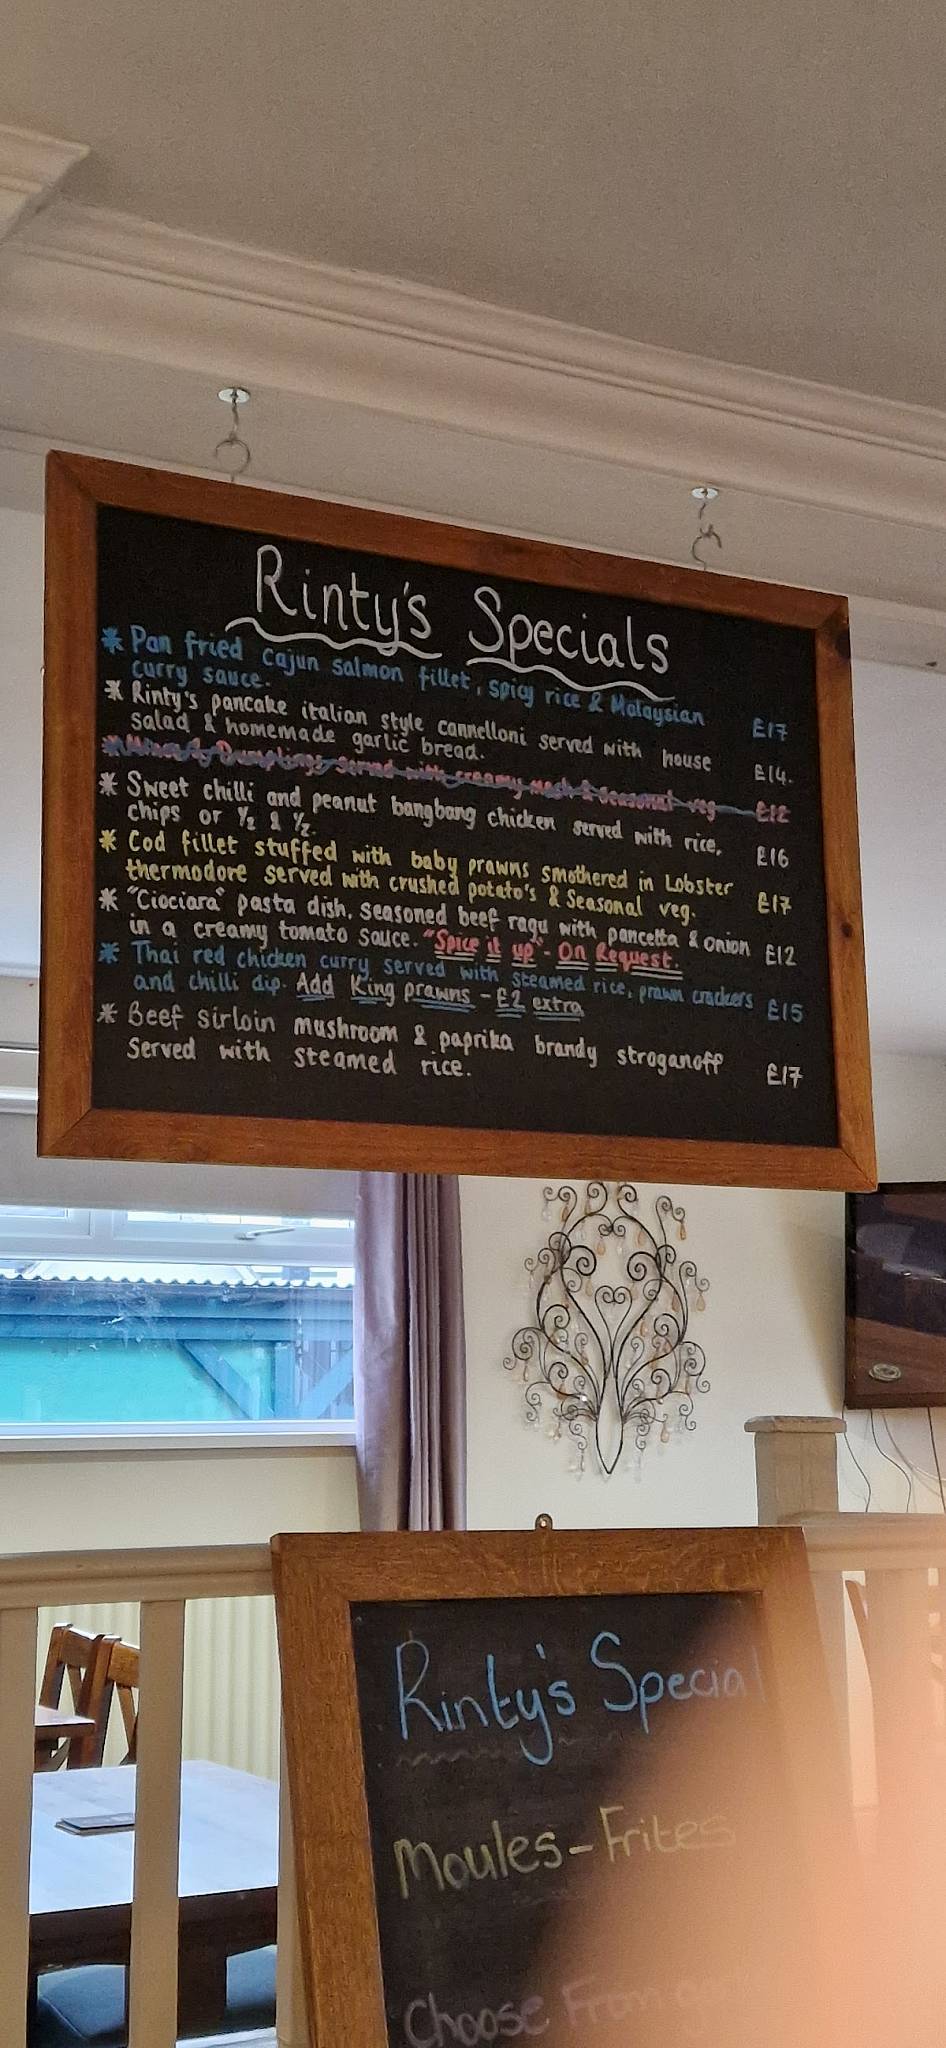 Rinty's Specials
* Pan fried Cajun salmon fillet, spicy rice & Malaysian
curry sauce. £17
* Rinty's pancake italian style cannelloni served with house
salad & homemade garlic bread. £14.
* Mince & Dumplings served with creamy mash & seasonal veg £12
* Sweet chilli and peanut bangbang chicken served with rice,
chips or ½ & ½. £16
* Cod fillet stuffed with baby prawns smothered in Lobster
thermodore served with crushed potato's & Seasonal veg. £17
* "Ciociara" pasta dish, seasoned beef ragu with pancetta & onion
in a creamy tomato sauce. "Spice it up" - On Request. £12
* Thai red chicken curry served with steamed rice, prawn crackers
and chilli dip. Add King prawns - £2 extra £15
* Beef sirloin mushroom & paprika brandy stroganoff
Served with steamed rice. £17
Rinty's Special
Moules-Frites
Choose From